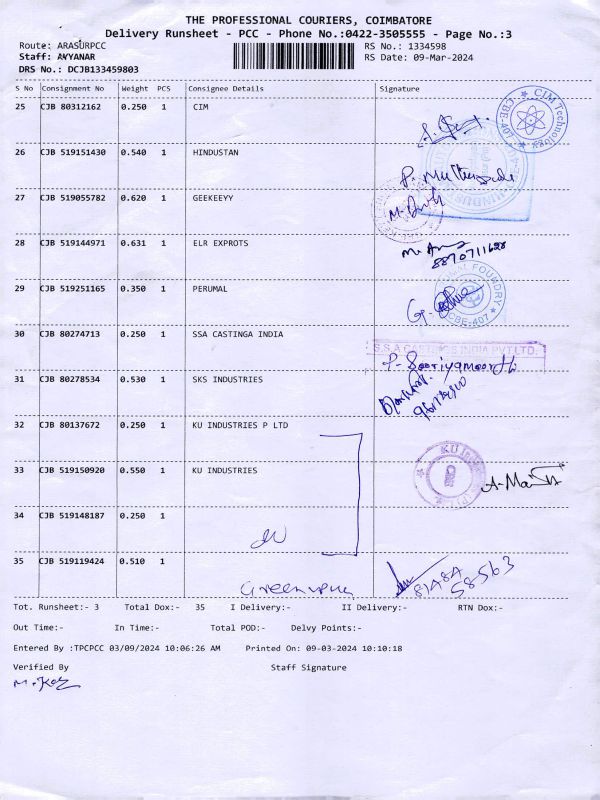 THE PROFESSIONAL COURIERS, COIMBATORE
Delivery Runsheet - PCC - Phone No.:0422-3505555 - Page No.:3
Route: ARASURPCC RS No.: 1334598
Staff: AYYANAR RS Date: 09-Mar-2024
DRS No.: DCJB133459803
S No Consignment No Weight PCS Consignee Details Signature
25 CJB 80312162 0.250 1 CIM
CIM Technology CBE-407
26 CJB 519151430 0.540 1 HINDUSTAN
27 CJB 519055782 0.620 1 GEEKEEYY
28 CJB 519144971 0.631 1 ELR EXPROTS
8870711698
29 CJB 519251165 0.350 1 PERUMAL
FOUNDRY CBE-407
30 CJB 80274713 0.250 1 SSA CASTINGA INDIA
S.S.A CASTINGS INDIA PVT LTD.
P. Sooriyamoorthi
31 CJB 80278534 0.530 1 SKS INDUSTRIES
32 CJB 80137672 0.250 1 KU INDUSTRIES P LTD
33 CJB 519150920 0.550 1 KU INDUSTRIES
KU
34 CJB 519148187 0.250 1
35 CJB 519119424 0.510 1
Tot. Runsheet:- 3 Total Dox:- 35 I Delivery:- II Delivery:- RTN Dox:-
Out Time:- In Time:- Total POD:- Delvy Points:-
Entered By :TPCPCC 03/09/2024 10:06:26 AM Printed On: 09-03-2024 10:10:18
Verified By Staff Signature